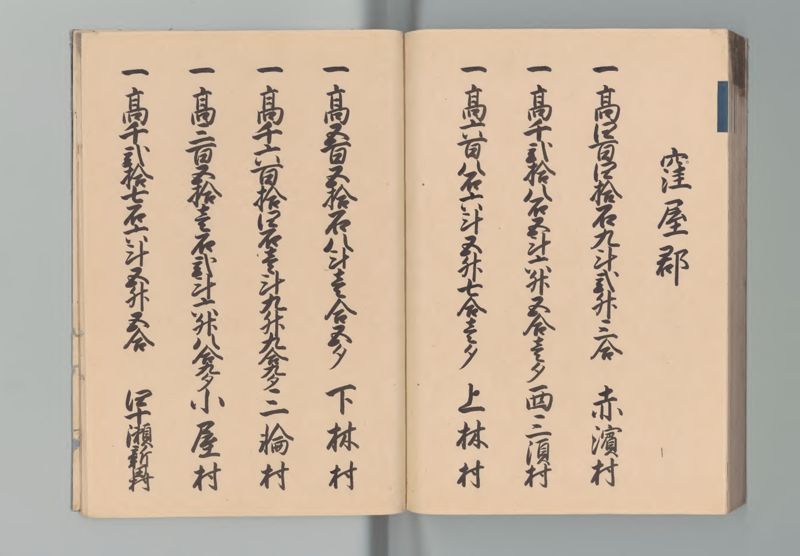 窪屋郡
一 高四百四拾石九斗弐升三合 赤濱村
一 高千弐拾八石五斗六升五合壱夕 西三須村
一 高六百八石六斗五升七合壱夕 上林村
一 高五百五拾石八斗壱合五夕 下林村
一 高千六百拾四石壱斗九升九合九夕 三輪村
一 高二百五拾壱石弐斗六升八合九夕 小屋村
一 高千弐拾七石六斗五升五合 四十瀬新田村